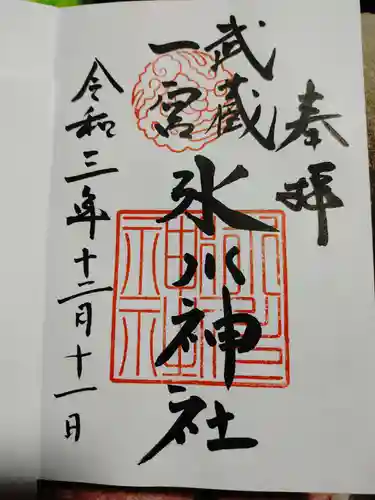 奉拝
武蔵
一宮
氷川神社
令和三年十二月十一日
氷川
神社